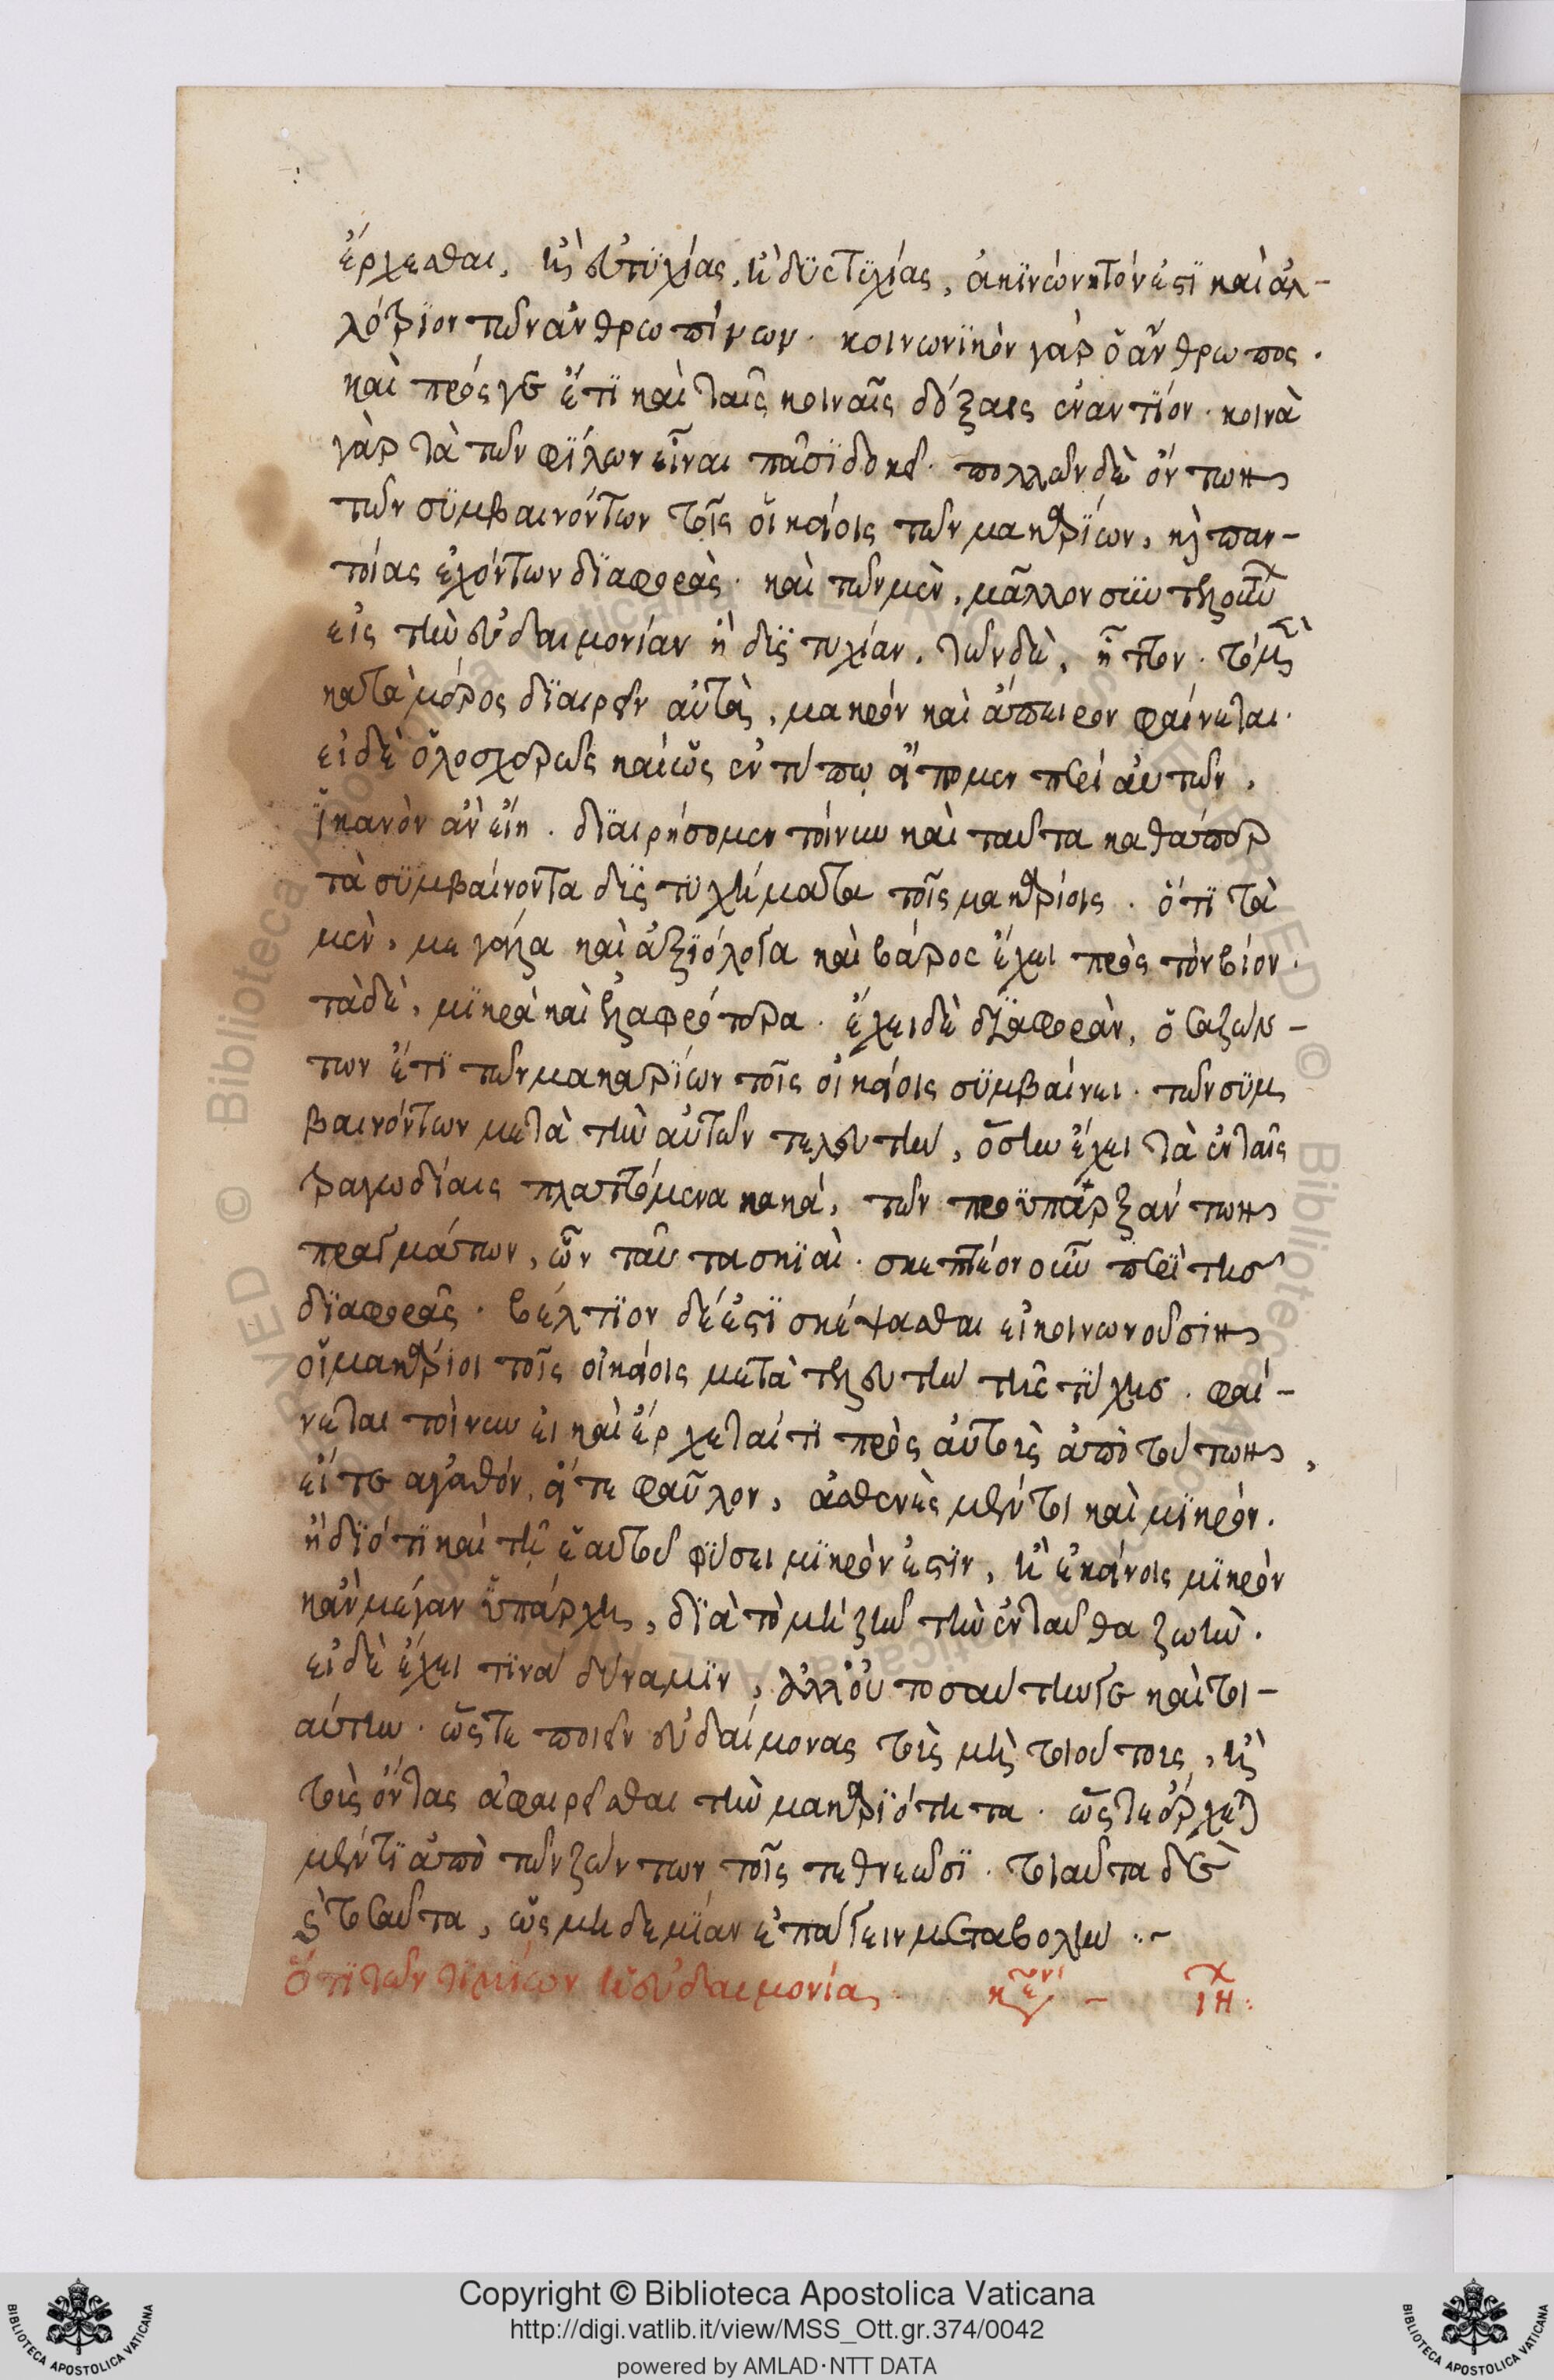 ἔρχεσθαι, ἢ εὐτυχίας, ἢ δυστυχίας, ἀκινώνητόν ἐστι καὶ ἀλ-
λότριον τῶν ἀνθρωπίνων. κοινωνικὸν γὰρ ὁ ἄνθρωπος.
καὶ πρός γε ἔτι καὶ ταῖς κοιναῖς δόξαις ἐναντίον. κοινὰ
γὰρ τὰ τῶν φίλων εἶναι πᾶσι δοκεῖ. πολλῶν δὲ ὄντων
τῶν συμβαινόντων τοῖς οἰκείοις τῶν μακαρίων, καὶ παν-
τοίας ἐχόντων διαφορὰς. καὶ τῶν μὲν, μᾶλλον συντελούντων
εἰς τὴν εὐδαιμονίαν ἢ δυστυχίαν, τῶν δὲ, ἧττον. τὸ μὲν
κατὰ μέρος διαιρεῖν αὐτὰ, μακρόν καὶ ἄπειρον φαίνεται.
εἰ δὲ ὁλοσχερῶς καὶ ὡς ἐν τύπῳ εἴπομεν περὶ αὐτῶν,
ἱκανὸν ἂν εἴη. διαιρήσομεν τοίνυν καὶ ταῦτα καθάπερ
τὰ συμβαίνοντα δυστυχήματα τοῖς μακαρίοις. ὅτι τὰ
μὲν, μεγάλα καὶ ἀξιόλογα καὶ βάρος ἔχει πρὸς τὸν βίον.
τὰ δὲ, μικρὰ καὶ ἐλαφρότερα. ἔχει δὲ διαφορὰν, ὅσα ζών-
των ἔτι τῶν μακαρίων τοῖς οἰκείοις συμβαίνει. τῶν συμ
βαινόντων μετὰ τὴν αὐτῶν τελευτὴν, ὅσην ἔχει τὰ ἐν ταῖς
τραγωδίαις πλαττόμενα κακά, τῶν προϋπαρξάντων
πραγμάτων, ὧν ταῦτα σκιαὶ. σκεπτέον οὖν περὶ τῆς
διαφορᾶς. βέλτιον δέ ἐστι σκέψασθαι εἰ κοινωνοῦσιν
οἱ μακάριοι τοῖς οἰκείοις μετὰ τελευτὴν τῆς τύχης. φαί-
νεται τοίνυν εἰ καὶ ἔρχεταί τι πρὸς αὐτοὺς ἀπὸ τούτων,
εἴτε ἀγαθόν, εἴτε φαῦλον, ἀσθενὲς μέντοι καὶ μικρόν.
ἢ διότι καὶ τῇ ἑαυτοῦ φύσει μικρόν ἐστιν, ἢ ἐκείνοις μικρὸν
κἂν μέγαν ὑπάρχῃ, διὰ τὸ μὴ ζῆν τὴν ἐνταῦθα ζωὴν.
εἰ δὲ ἔχει τινά δύναμιν, ἀλλ' οὐ τοσαύτην γε καὶ τοι-
αύτην. ὥστε ποιεῖν εὐδαίμονας τοὺς μὴ τοιούτους, ἢ
τοὺς ὄντας ἀφαιρεῖσθαι τὴν μακαριότητα. ὥστε ἔρχεται
μέν τι ἀπὸ τῶν ζώντων τοῖς τεθνεῶσι. τοιαῦτα δὲ
καὶ τοσαῦτα, ὡς μηδεμίαν ἐπάγειν μεταβολήν.
ὅτι τῶν τιμίων ἡ εὐδαιμονία. ιη: